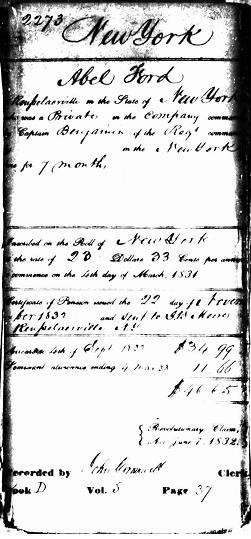 2273
New York
Abel Ford
Rensselaerville in the State of New York
who was a Private in the Company comm
Captain Benjamin of the Regt comm
in the New York
for 7 month,
Inscribed on the Roll of New York
the rate of 23 Dollars 33 Cents per ann
commence on the 4th day of March, 1831
Certificate of Pension issued the 22 day of Novem
ber 1832 and sent to
Rensselaerville N.Y.
4th of Sept 1832 $34.99
allowance ending 4 33 11 66
$46 65
{ Revolutionary Claim,
{ Act June 7, 1832.
Recorded by Clerk,
Book D Vol. 5 Page 37